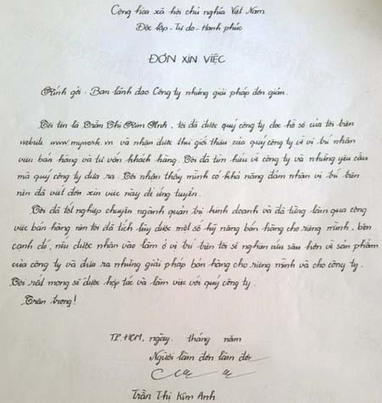 Cộng hòa xã hội chủ nghĩa Việt Nam
Độc lập - Tự do - Hạnh phúc
ĐƠN XIN VIỆC
Kính gởi: Ban lãnh đạo Công ty những giải pháp đơn giản.
Tôi tên là Trần Thị Kim Anh, tôi đã được quý công ty đọc hồ sơ của tôi trên
website www.mywork.vn và nhận được thư giới thiệu của quý công ty về vị trí nhân
viên bán hàng và tư vấn khách hàng. Tôi đã tìm hiểu về công ty và những yêu cầu
mà quý công ty đưa ra. Tôi nhận thấy mình có khả năng đảm nhận vị trí trên
nên đã viết đơn xin việc này để ứng tuyển.
Tôi đã tốt nghiệp chuyên ngành quản trị kinh doanh và đã từng làm qua công
việc bán hàng nên tôi đã tích lũy được một số kỹ năng bán hàng cho riêng mình, bên
cạnh đó, nếu được nhận vào làm ở vị trí trên tôi sẽ nghiên cứu sâu hơn về sản phẩm
của công ty và đưa ra những giải pháp bán hàng cho riêng mình và cho công ty.
Tôi rất mong sẽ được hợp tác và làm việc với quý công ty.
Trân trọng!
TP.HCM, ngày tháng năm
Người làm đơn
Trần Thị Kim Anh